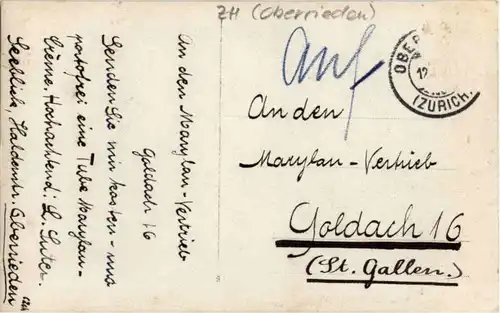 ZH (Oberrieden)
An den Marylan-Vertrieb
Goldach 16
Senden Sie mir kosten- und
portofrei eine Tube Marylan-
Crème. Hochachtend: L. Suter.
Seeblick, Haldenstr. Oberrieden
An den
Marylan-Vertrieb
Goldach 16
(St. Gallen.)
(ZÜRICH)